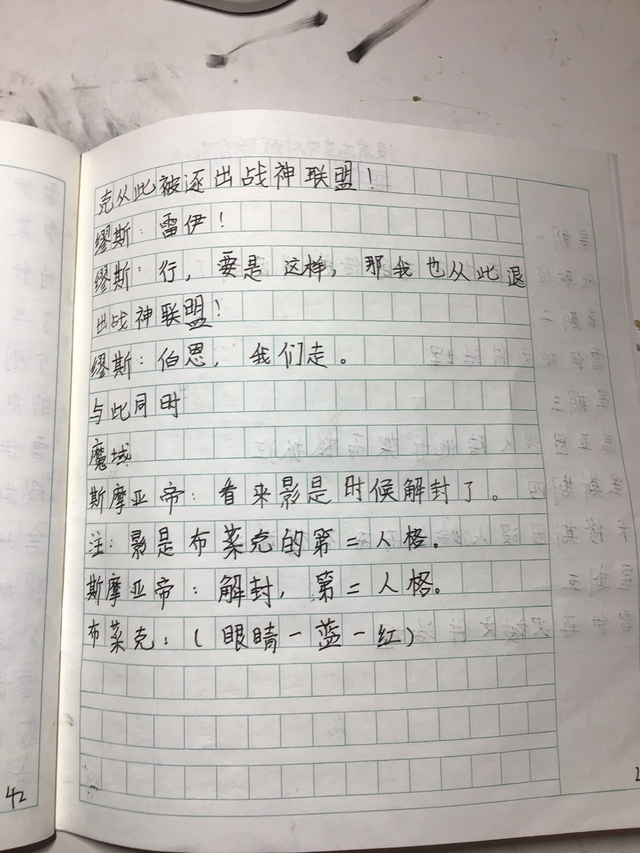 克从此被逐出战神联盟！
缪斯：雷伊！
缪斯：行，要是这样，那我也从此退
出战神联盟！
缪斯：伯恩，我们走。
与此同时
魔域
斯摩亚帝：看来影是时候解封了。
注：影是布莱克的第二人格。
斯摩亚帝：解封，第二人格。
布莱克：（眼睛一蓝一红）
42